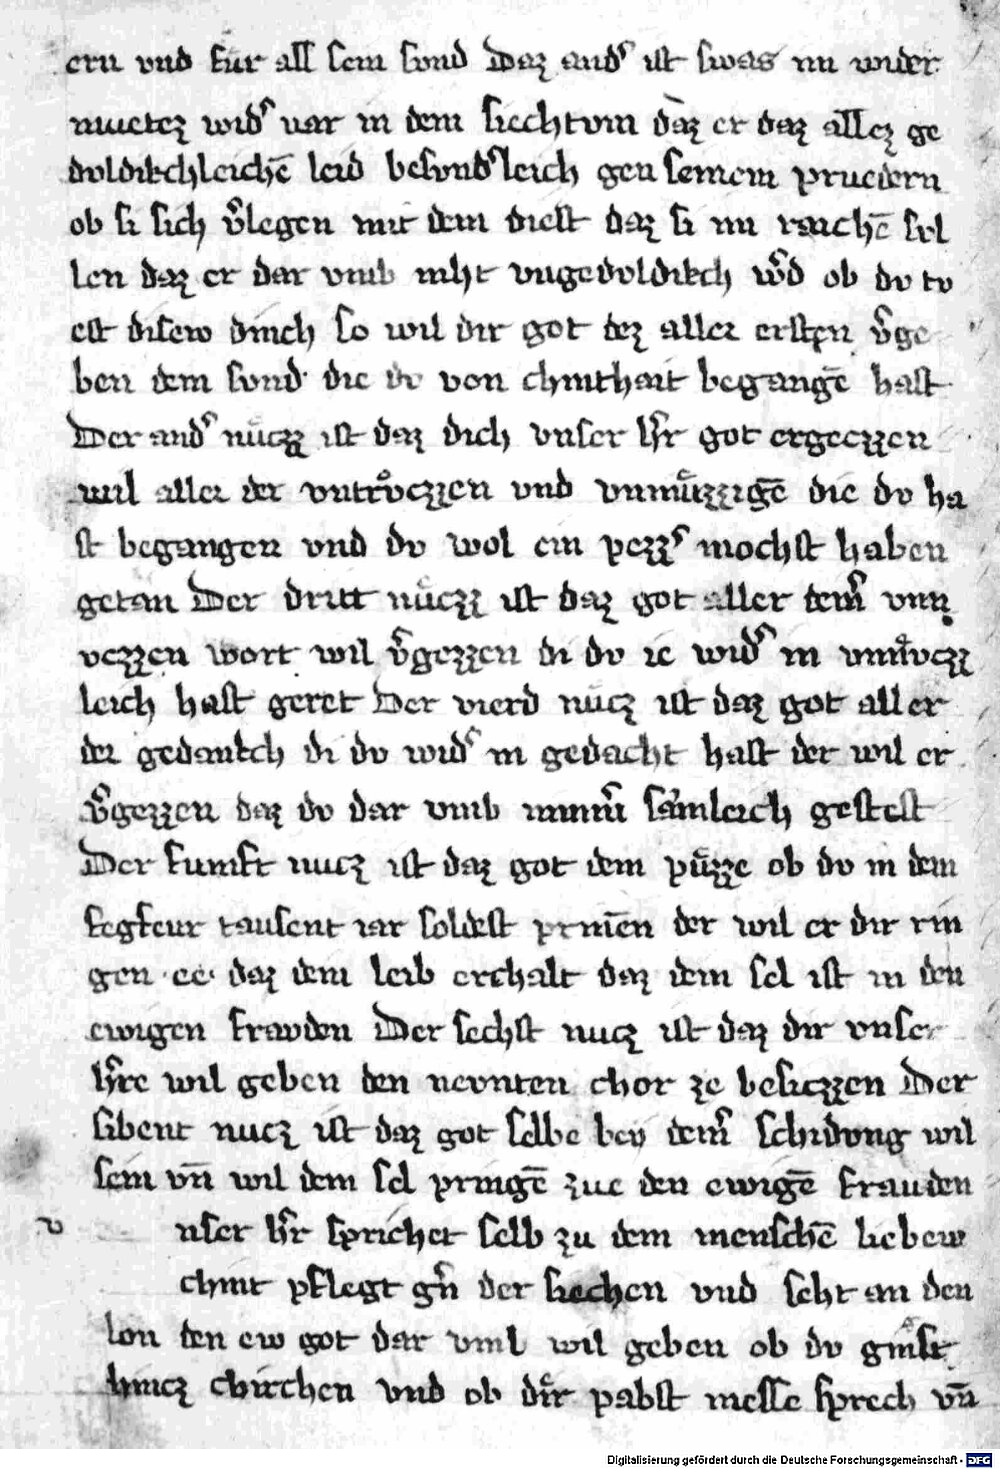 ern vnd fur all sein sund Daz and̾ ist swas im wider
muetez wid̾ uar in dem siechtvm daz er daz allez ge
dvldikchleichē leid besvnd̾leich gen seinem pruedern
ob si sich v̾legen mit dem dinst daz si im raichē svl
len daz er dar vmb niht vngedvldikch w̾d ob dv tv
est disew dinch so wil dir got dez aller ersten v̾ge
ben dein svnd die dv von chinthait begangē hast
Der and̾ nuͤczz ist daz dich vnser h̾r got ergeczzen
wil aller der vntroͤczzen vnd vnmuͤzzigē die dv ha
st begangen vnd dv wol ein pezz̾ mochst haben
getan Der dritt nuͤczz ist daz got aller dein̾ vnn
vczzen wort wil v̾gezzen di dv ie wid̾ in vnnvͤczz
leich hast geret Der vierd nucz ist daz got aller
der gedankch di dv wid̾ in gedacht hast der wil er
v̾gezzen daz dv dar vmb nimm̾ samleich gestest
Der funft nucz ist daz got dein puͤzze ob dv in dem
fegfeur tausent iar soldest prinnēn der wil er dir rin
gen ee daz dein leib erchalt daz dein sel ist in den
ewigen frauden Der sechst nucz ist daz dir vnser
h̾re wil geben den nevnten chor ze besiczzen Der
sibent nucz ist daz got selbe bey dein̾ schidvng wil
sein vn̄ wil dein sel pringē zue den ewigē frauden
v nser h̾r sprichet selb zu dem menschē liebew
chint pflegt g̾n der siechen vnd seht an den
lon den ew got dar vmb wil geben ob dv
hincz chirchen vnd ob dir der pabst messe sprech vn̄
Digitalisierung gefördert durch die Deutsche Forschungsgemeinschaft - DFG